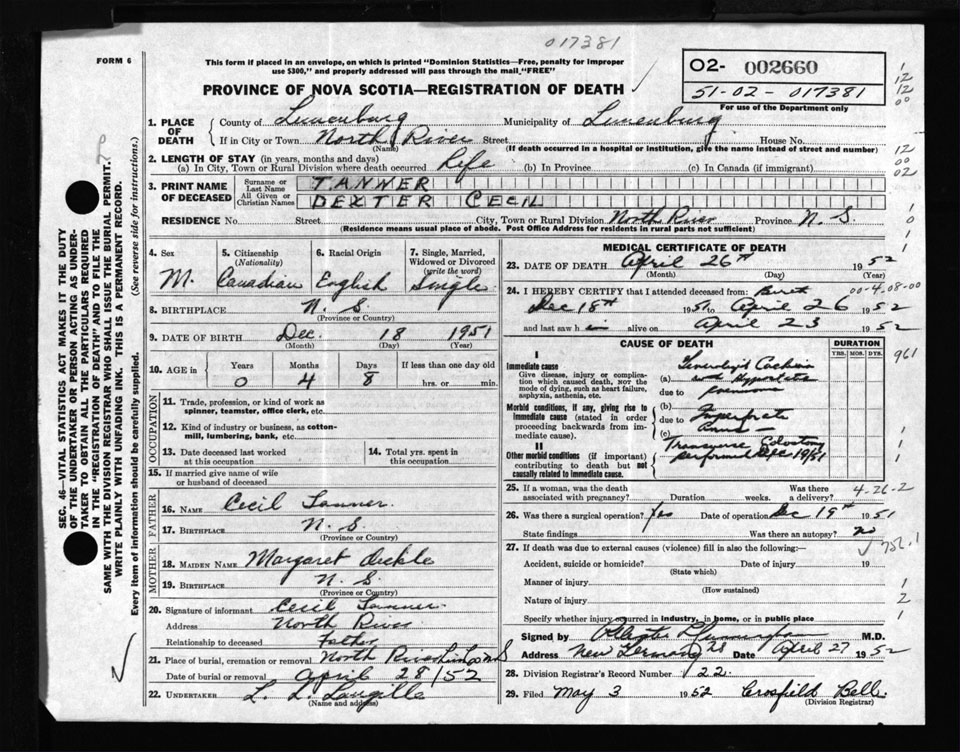 017381
FORM 6
This form if placed in an envelope, on which is printed "Dominion Statistics—Free, penalty for improper
use $300," and properly addressed will pass through the mail "FREE"
PROVINCE OF NOVA SCOTIA—REGISTRATION OF DEATH
02- 002660
51-02-017381
For use of the Department only
1. PLACE OF DEATH
County of Lunenburg Municipality of Lunenburg
If in City or Town North River Street House No.
(Name) (If death occurred in a hospital or institution, give the name instead of street and number)
2. LENGTH OF STAY (in years, months and days)
(a) In City, Town or Rural Division where death occurred Life (b) In Province (c) In Canada (if immigrant)
3. PRINT NAME OF DECEASED
Surname or Last Name TANNER
All Given or Christian Names DEXTER CECIL
RESIDENCE No. Street City, Town or Rural Division North River Province N. S.
(Residence means usual place of abode. Post Office Address for residents in rural parts not sufficient)
4. Sex M.
5. Citizenship (Nationality) Canadian
6. Racial Origin English
7. Single, Married, Widowed or Divorced (write the word) Single
8. BIRTHPLACE N. S.
(Province or Country)
9. DATE OF BIRTH Dec. 18 1951
(Month) (Day) (Year)
10. AGE in Years 0 Months 4 Days 8 If less than one day old
hrs. or min.
OCCUPATION
11. Trade, profession, or kind of work as
spinner, teamster, office clerk, etc.
12. Kind of industry or business, as cotton-
mill, lumbering, bank, etc.
13. Date deceased last worked
at this occupation
14. Total yrs. spent in
this occupation
15. If married give name of wife
or husband of deceased
FATHER
16. NAME Cecil Tanner
17. BIRTHPLACE N. S.
(Province or Country)
MOTHER
18. MAIDEN NAME Margaret
19. BIRTHPLACE N. S.
(Province or Country)
20. Signature of informant Cecil Tanner
Address North River
Relationship to deceased Father
21. Place of burial, cremation or removal North River
Date of burial or removal April 28/52
22. UNDERTAKER L. L. Langille
(Name and address)
MEDICAL CERTIFICATE OF DEATH
23. DATE OF DEATH April 26th 1952
(Month) (Day) (Year)
24. I HEREBY CERTIFY that I attended deceased from: Birth 00-4.08-00
Dec 18th 1951 to April 26 1952
and last saw him alive on April 23 1952
CAUSE OF DEATH
DURATION
YRS. MOS. DYS.
I
Immediate cause
Give disease, injury or compli-
cation which caused death, NOT the
mode of dying, such as heart failure,
asphyxia, asthenia, etc.
(a)
due to
Morbid conditions, if any, giving rise to
immediate cause (stated in order
proceeding backwards from im-
mediate cause).
(b)
due to Imperforate
(c) Anus
II
Other morbid conditions (if important)
contributing to death but not
causally related to immediate cause.
Transverse Colostomy
performed Dec 19/51
961
25. If a woman, was the death
associated with pregnancy? Duration weeks. Was there
a delivery?
4-26-2
26. Was there a surgical operation? Yes Date of operation Dec 19th 1951
State findings Was there an autopsy? no
756.1
27. If death was due to external causes (violence) fill in also the following:—
Accident, suicide or homicide? Date of injury 19
(State which)
Manner of injury
(How sustained)
Nature of injury
Specify whether injury occurred in industry, in home, or in public place
Signed by M.D.
Address New Germany Date April 27 1952
28. Division Registrar's Record Number 22
29. Filed May 3 1952 Crosfield Bell
(Division Registrar)
SEC. 46—VITAL STATISTICS ACT MAKES IT THE DUTY
OF THE UNDERTAKER OR PERSON ACTING AS UNDER-
TAKER TO OBTAIN ALL THE PARTICULARS REQUIRED
IN THE "REGISTRATION OF DEATH" AND TO FILE THE
SAME WITH THE DIVISION REGISTRAR WHO SHALL ISSUE THE BURIAL PERMIT.
WRITE PLAINLY WITH UNFADING INK. THIS IS A PERMANENT RECORD.
Every item of information should be carefully supplied. (See reverse side for instructions.)